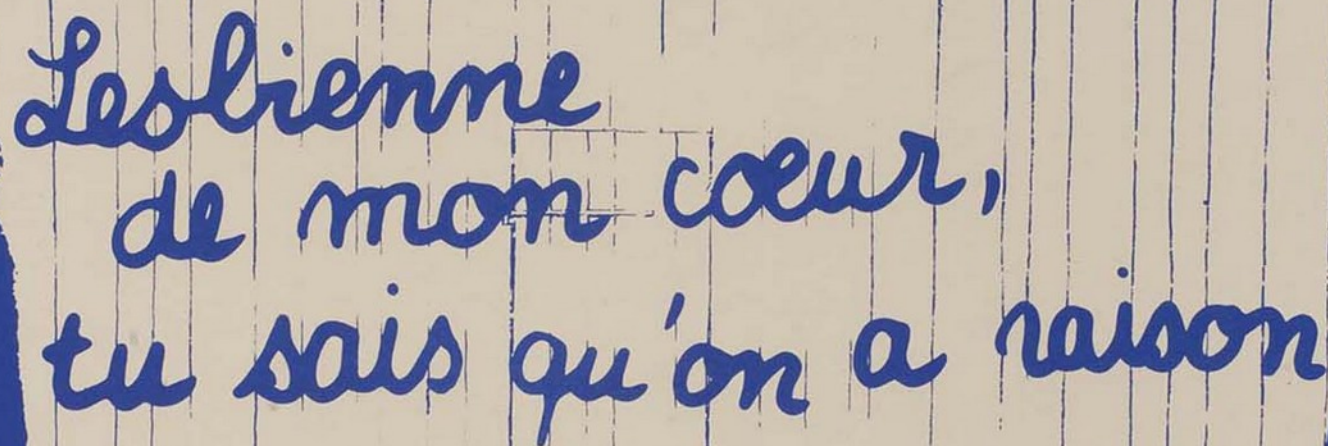 Lesbienne
de mon cœur,
tu sais qu'on a raison